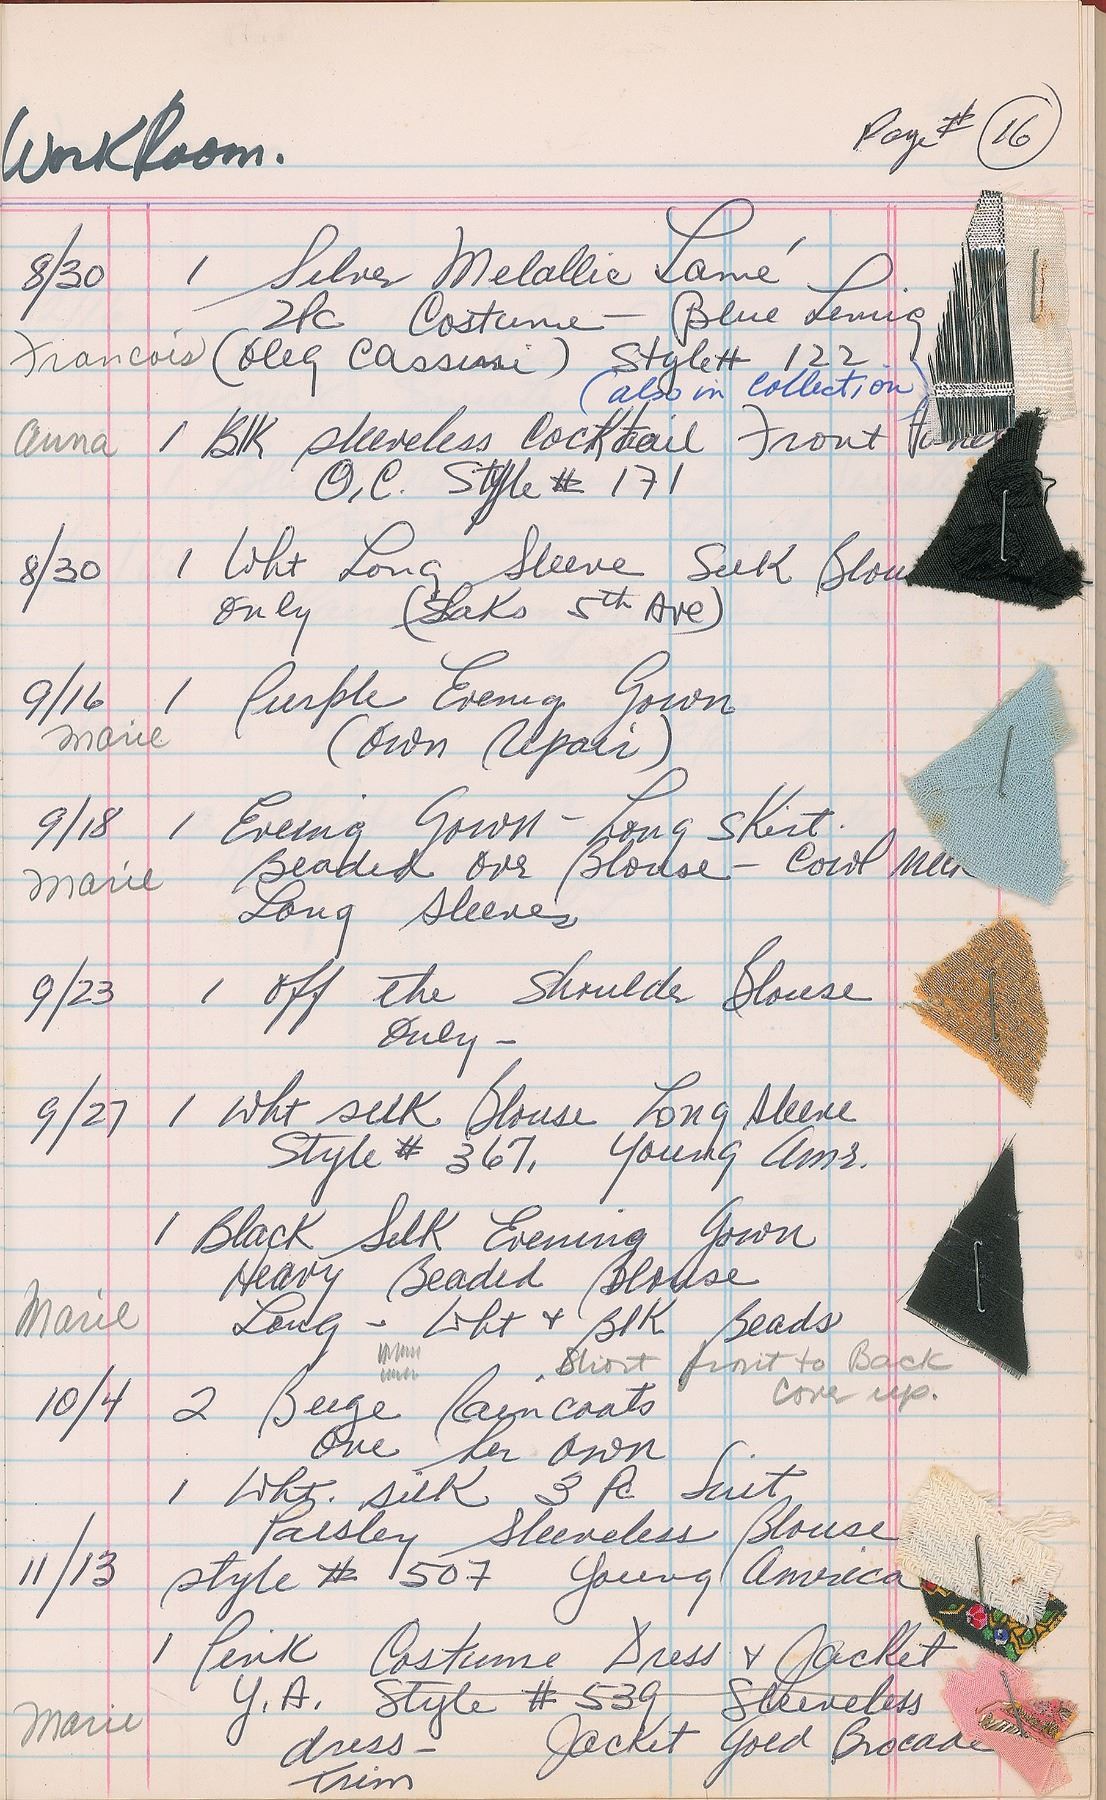 WorkRoom.
Page # 16
8/30 1 Silver Metallic Lamé
2Pc Costume - Blue Lining
Francois (Oleg Cassini) Style# 122
(also in collection)
Anna 1 Blk sleeveless Cocktail Front
O.C. Style # 171
8/30 1 Wht Long Sleeve Silk Blou
Only (Saks 5th Ave)
9/16 1 Purple Evening Gown
Marie (Own Repair)
9/18 1 Evening Gown - Long Skirt.
Marie Beaded Over Blouse - Cowl Neck
Long Sleeves
9/23 1 Off the Shoulder Blouse
Only -
9/27 1 Wht silk Blouse Long Sleeve
Style # 367, Young Amr.
1 Black Silk Evening Gown
Heavy Beaded Blouse
Marie Long - Wht & Blk Beads
Short front to Back
cover up.
10/4 2 Beige Raincoats
One her own
1 Wht. silk 3 Pc Suit
Paisley Sleeveless Blouse
11/13 style # 507 Young America
1 Pink Costume Dress & Jacket
Y.A. Style # 539 Sleeveless
Marie dress - Jacket Gold Brocade
Trim